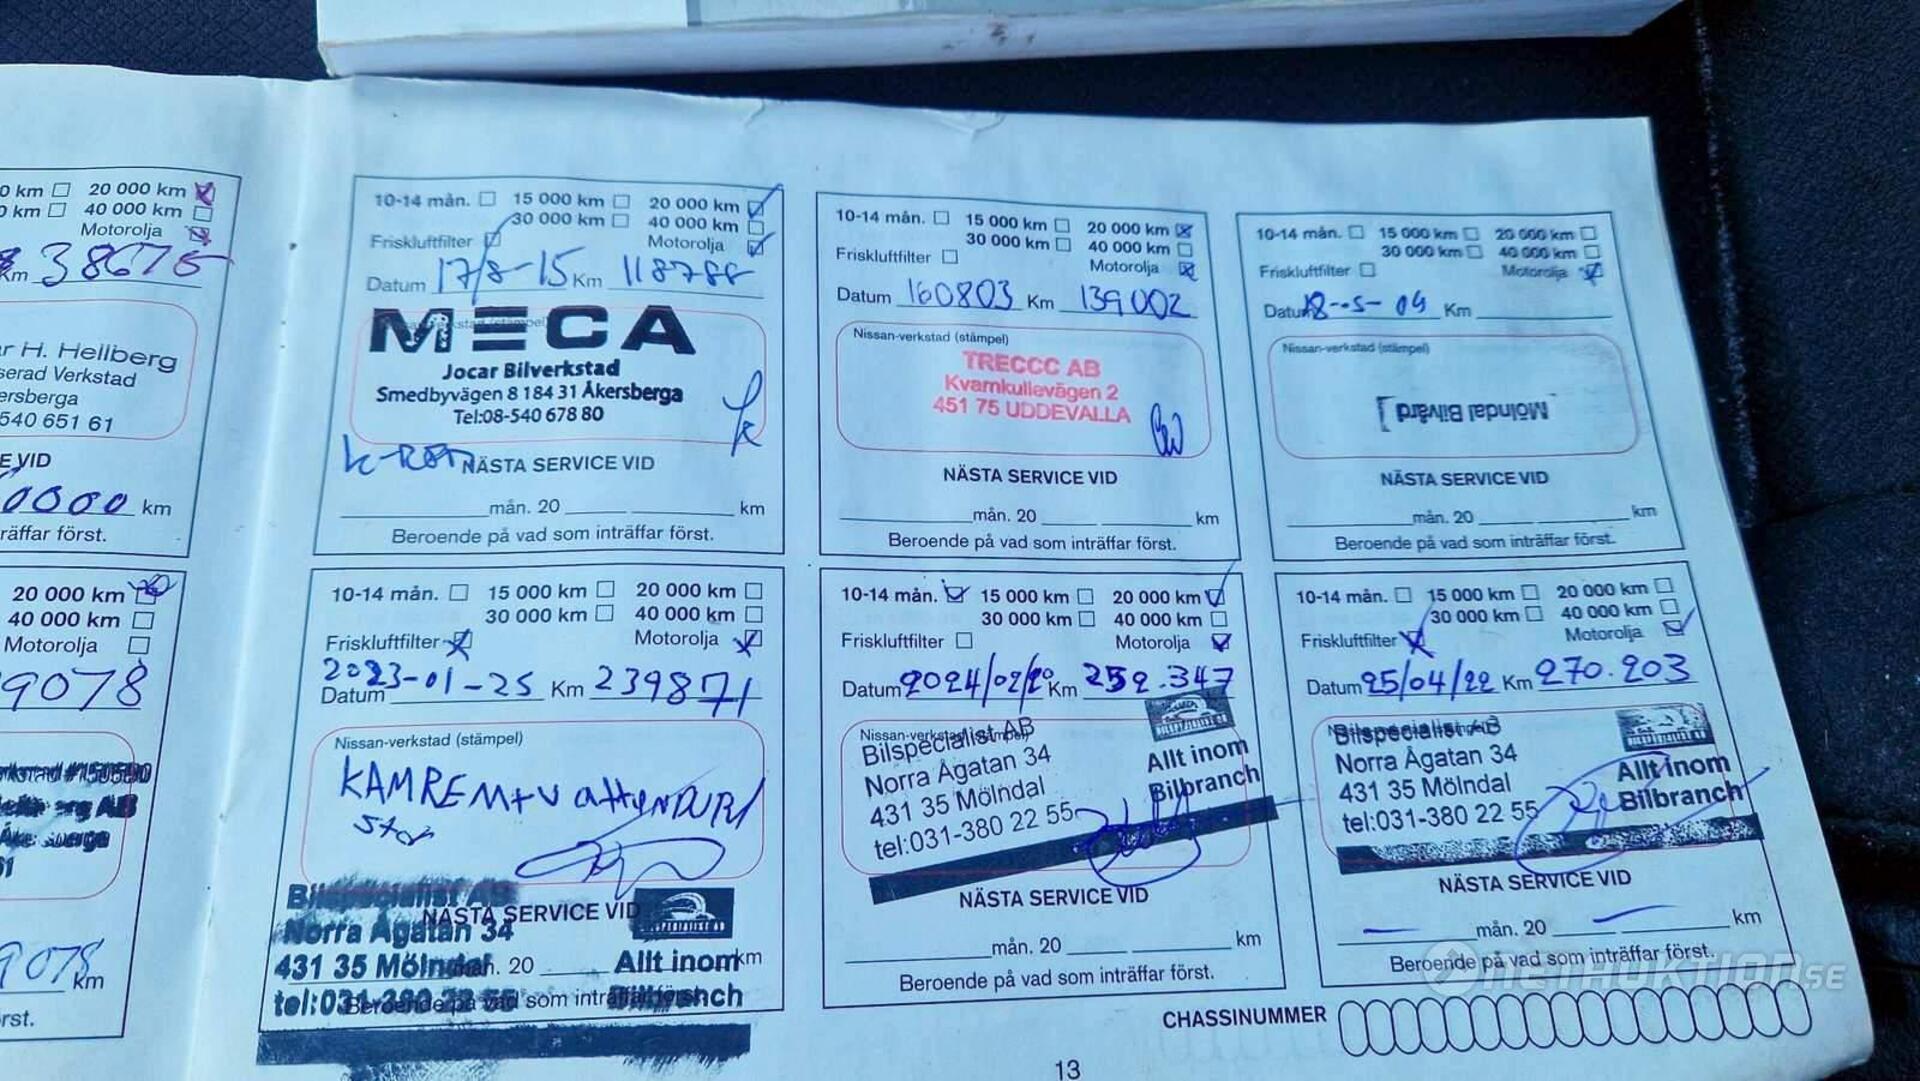 0 km 20 000 km
0 km 40 000 km
Motorolja
Km 38675
r H. Hellberg
serad Verkstad
ersberga
540 651 61
E VID
0000 km
räffar först.
20 000 km
40 000 km
Motorolja
9078
9078 km
rst.
10-14 mån. 15 000 km 20 000 km
30 000 km 40 000 km
Friskluftfilter Motorolja
Datum 17/8-15 Km 118788
MECA
Jocar Bilverkstad
Smedbyvägen 8 184 31 Åkersberga
Tel:08-540 678 80
NÄSTA SERVICE VID
mån. 20 km
Beroende på vad som inträffar först.
10-14 mån. 15 000 km 20 000 km
30 000 km 40 000 km
Friskluftfilter Motorolja
Datum 160803 Km 139002
Nissan-verkstad (stämpel)
TRECCC AB
Kvarnkullevägen 2
451 75 UDDEVALLA
NÄSTA SERVICE VID
mån. 20 km
Beroende på vad som inträffar först.
10-14 mån. 15 000 km 20 000 km
30 000 km 40 000 km
Friskluftfilter Motorolja
Datum 18-05-09 Km
Nissan-verkstad (stämpel)
Mölndal Bilvård
NÄSTA SERVICE VID
mån. 20 km
Beroende på vad som inträffar först.
10-14 mån. 15 000 km 20 000 km
30 000 km 40 000 km
Friskluftfilter Motorolja
Datum 2023-01-25 Km 239871
Nissan-verkstad (stämpel)
KAMREM
Bilspecialist AB
NÄSTA SERVICE VID
Norra Ågatan 34
431 35 Mölndal mån. 20 Allt inom km
tel:031-380 22 55 Beroende på vad som inträffar först. Bilbranch
10-14 mån. 15 000 km 20 000 km
30 000 km 40 000 km
Friskluftfilter Motorolja
Datum 2024/02/20 Km 252.347
Nissan-verkstad (stämpel)
Bilspecialist AB
Norra Ågatan 34 Allt inom
431 35 Mölndal Bilbranch
tel:031-380 22 55
NÄSTA SERVICE VID
mån. 20 km
Beroende på vad som inträffar först.
10-14 mån. 15 000 km 20 000 km
30 000 km 40 000 km
Friskluftfilter Motorolja
Datum 25/04/22 Km 270.203
Bilspecialist AB
Norra Ågatan 34
431 35 Mölndal Allt inom
tel:031-380 22 55 Bilbranch
NÄSTA SERVICE VID
mån. 20 km
Beroende på vad som inträffar först.
NETAUKTION.SE
CHASSINUMMER
13